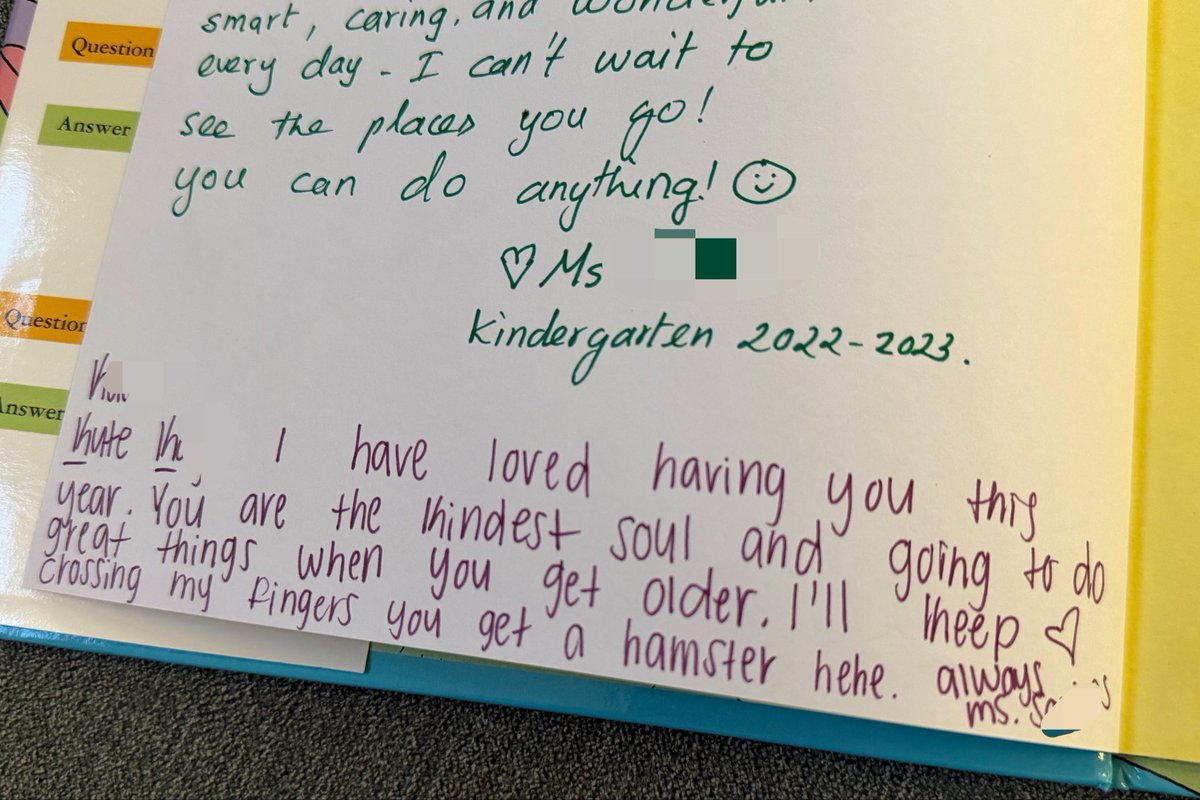 Question
Answer
Question
Answer
smart, caring, and wonderful
every day - I can't wait to
see the places you go!
you can do anything!
Ms
Kindergarten 2022-2023.
Kute I have loved having you this
year. You are the kindest soul and going to do
great things when you get older. I'll keep
crossing my fingers you get a hamster hehe. always
ms.